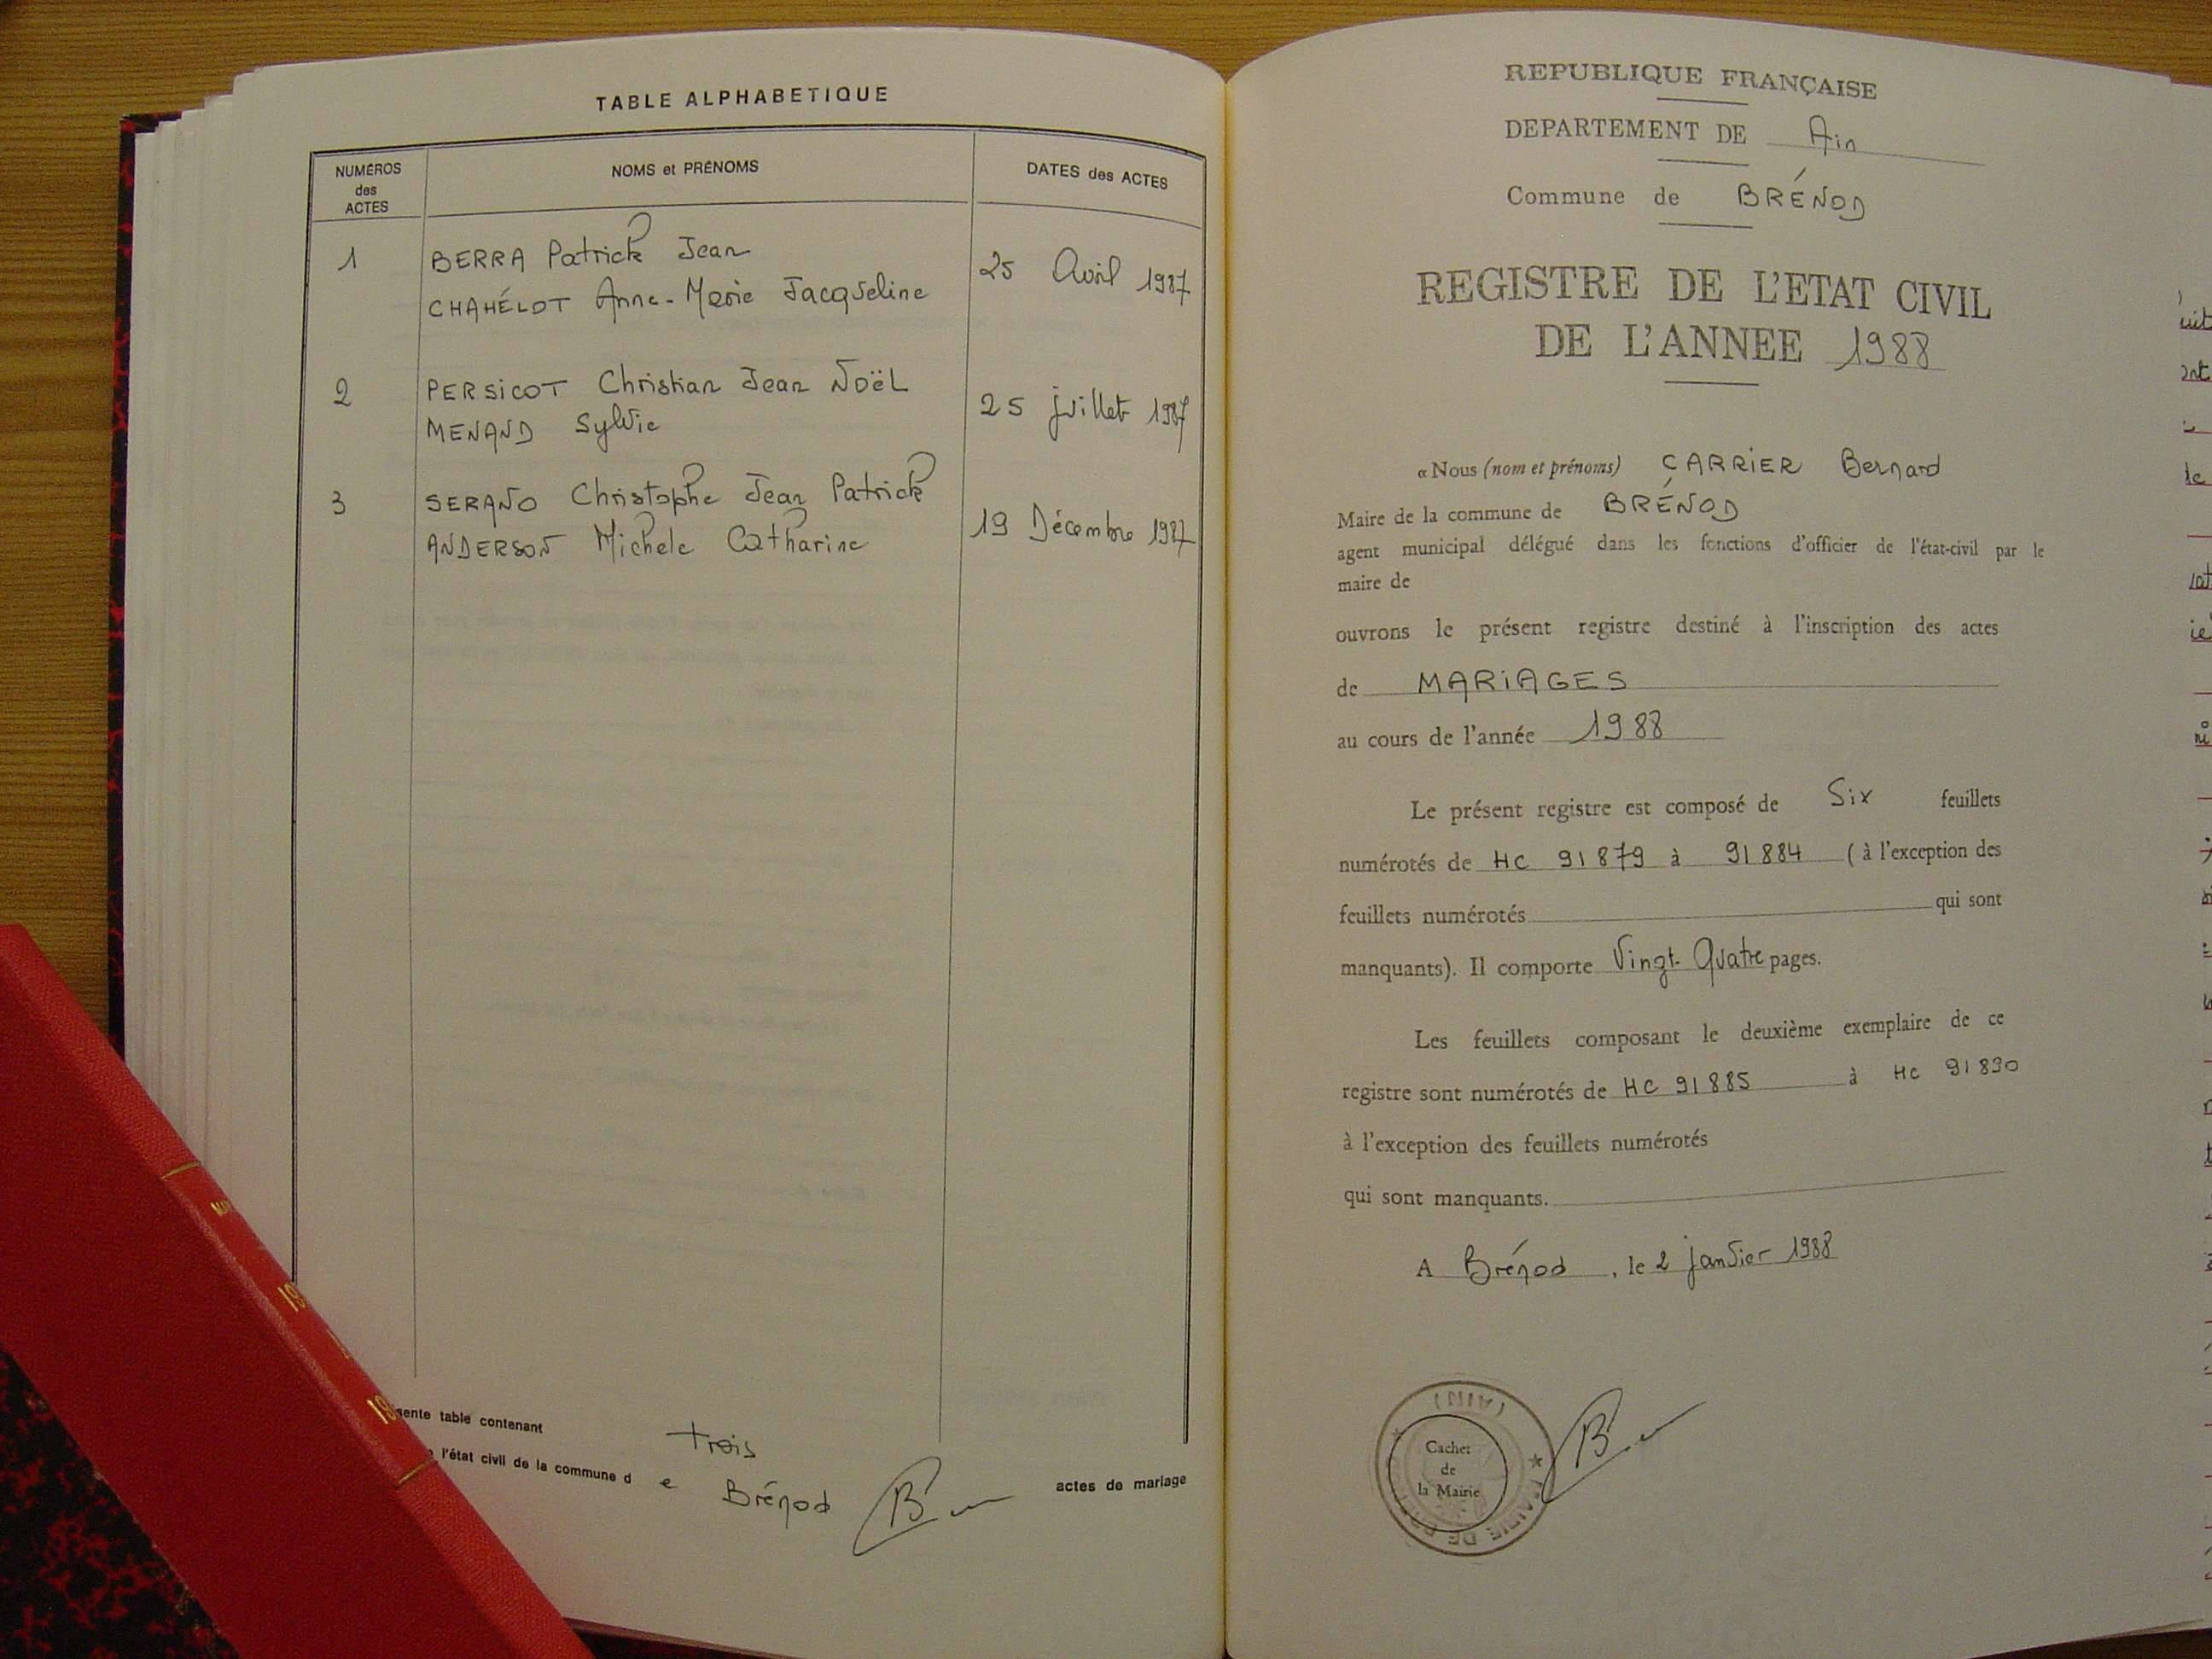 TABLE ALPHABETIQUE
NUMÉROS
des
ACTES
NOMS et PRÉNOMS
DATES des ACTES
1 BERRA Patrick Jean
CHAHÉLOT Anne-Marie Jacqueline
25 Avril 1987
2 PERSICOT Christian Jean Noël
MENAND Sylvie
25 juillet 1987
3 SERANO Christophe Jean Patrick
ANDERSON Michele Catharine
19 Décembre 1987
sente table contenant
trois
l'état civil de la commune d e Brénod
actes de mariage
REPUBLIQUE FRANÇAISE
DEPARTEMENT DE Ain
Commune de BRÉNOD
REGISTRE DE L'ETAT CIVIL
DE L'ANNEE 1988
« Nous (nom et prénoms) CARRIER Bernard
Maire de la commune de BRÉNOD
agent municipal délégué dans les fonctions d'officier de l'état-civil par le
maire de
ouvrons le présent registre destiné à l'inscription des actes
de MARIAGES
au cours de l'année 1988
Le présent registre est composé de Six feuillets
numérotés de HC 91879 à 91884 (à l'exception des
feuillets numérotés qui sont
manquants). Il comporte Vingt-Quatre pages.
Les feuillets composant le deuxième exemplaire de ce
registre sont numérotés de HC 91885 à HC 91890
à l'exception des feuillets numérotés
qui sont manquants.
A Brénod, le 2 janvier 1988
(AIN)
Cachet
de
la Mairie
MAIRIE DE